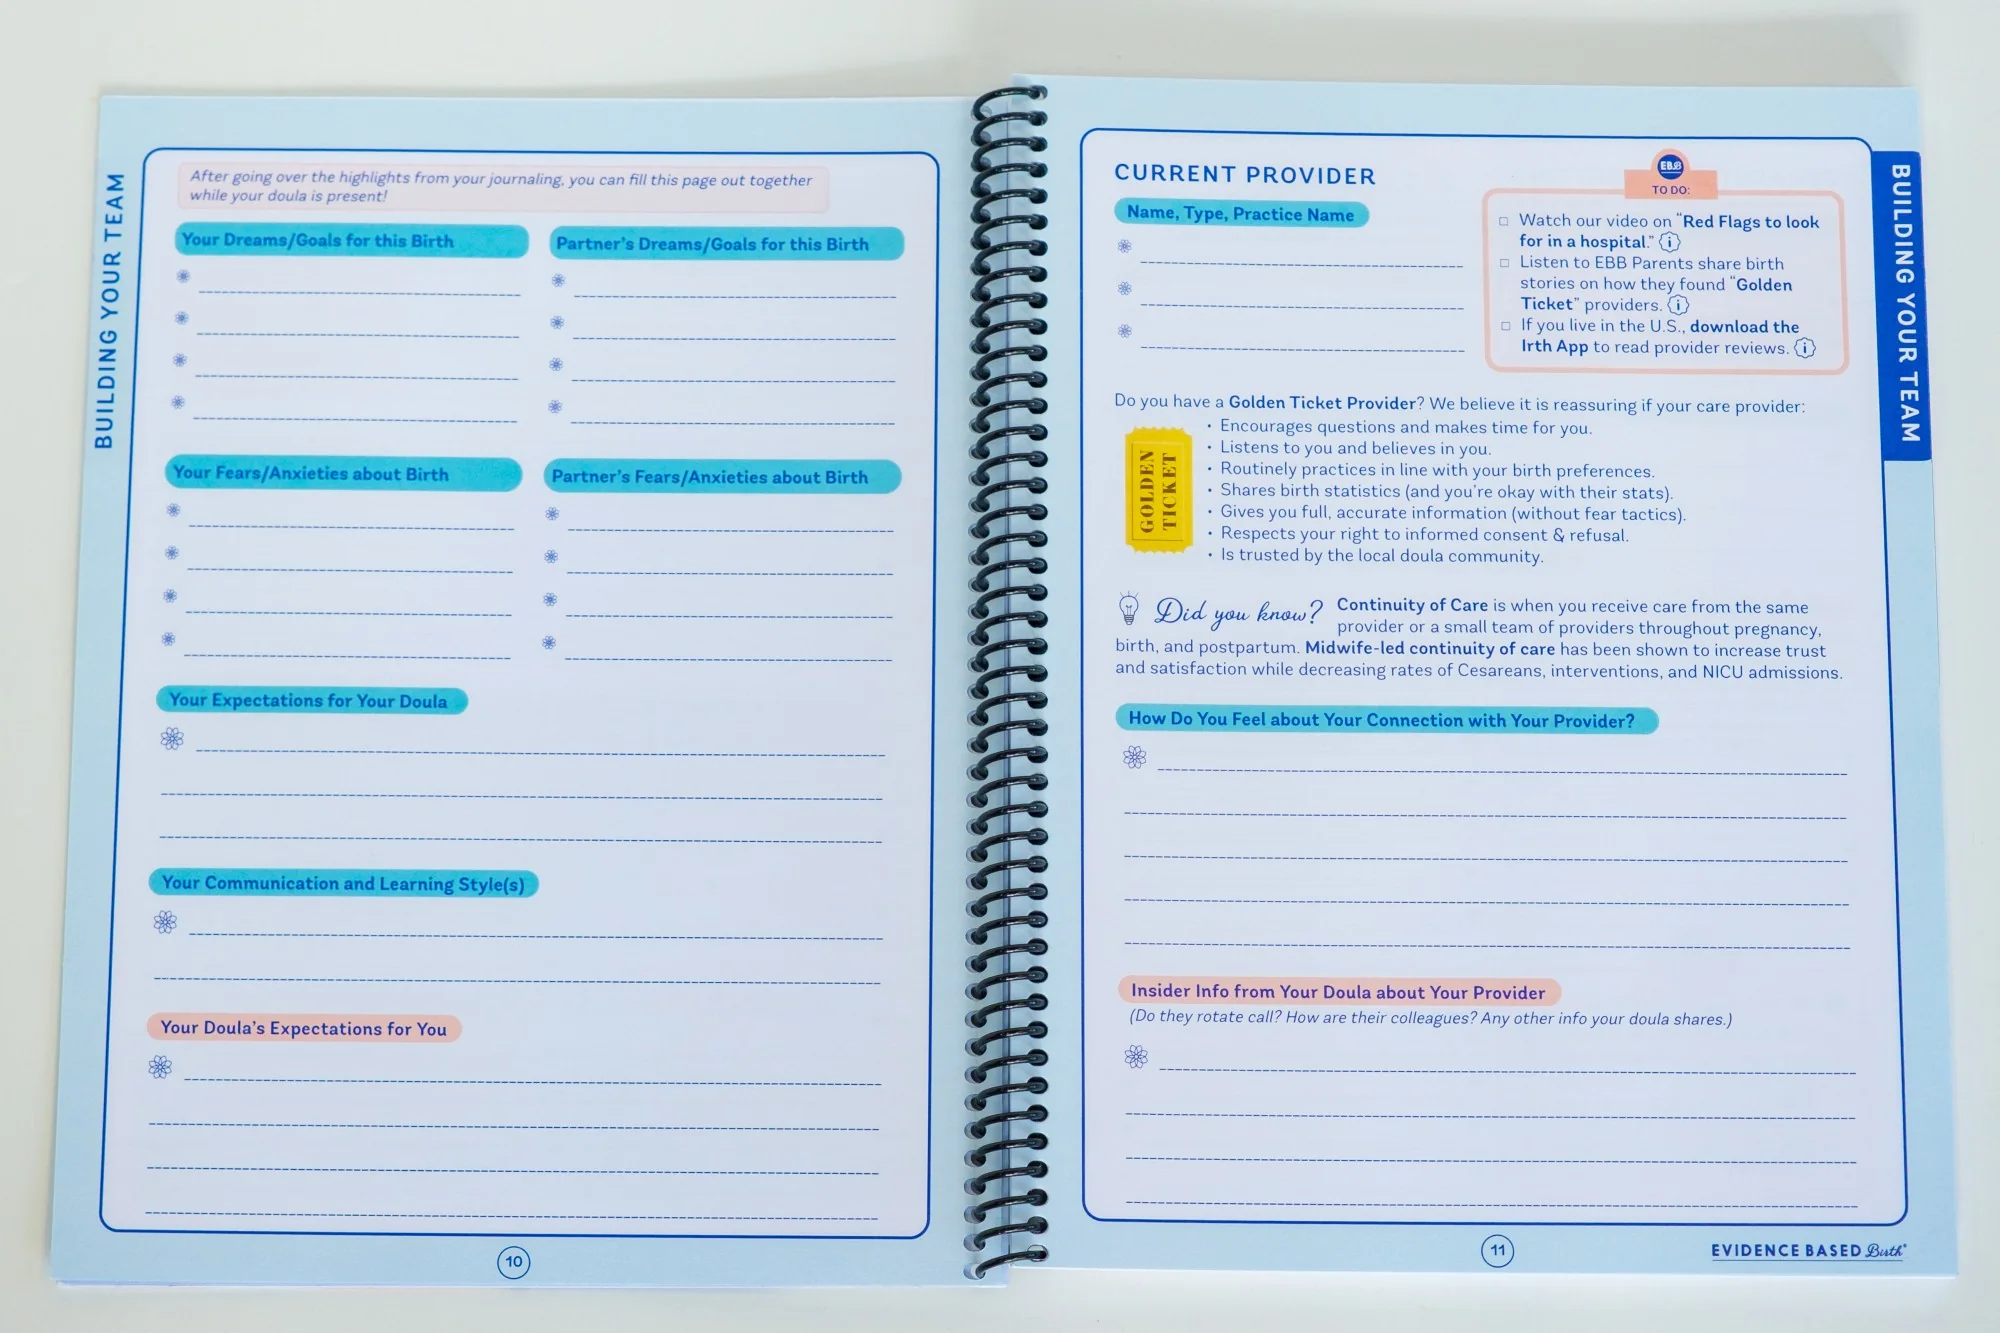 BUILDING YOUR TEAM
After going over the highlights from your journaling, you can fill this page out together
while your doula is present!
Your Dreams/Goals for this Birth
Partner's Dreams/Goals for this Birth
Your Fears/Anxieties about Birth
Partner's Fears/Anxieties about Birth
Your Expectations for Your Doula
Your Communication and Learning Style(s)
Your Doula's Expectations for You
10
CURRENT PROVIDER
Name, Type, Practice Name
EBB
TO DO:
Watch our video on "Red Flags to look
for in a hospital." i
Listen to EBB Parents share birth
stories on how they found "Golden
Ticket" providers. i
If you live in the U.S., download the
Irth App to read provider reviews. i
Do you have a Golden Ticket Provider? We believe it is reassuring if your care provider:
GOLDEN
TICKET
• Encourages questions and makes time for you.
• Listens to you and believes in you.
• Routinely practices in line with your birth preferences.
• Shares birth statistics (and you're okay with their stats).
• Gives you full, accurate information (without fear tactics).
• Respects your right to informed consent & refusal.
• Is trusted by the local doula community.
Did you know? Continuity of Care is when you receive care from the same
provider or a small team of providers throughout pregnancy,
birth, and postpartum. Midwife-led continuity of care has been shown to increase trust
and satisfaction while decreasing rates of Cesareans, interventions, and NICU admissions.
How Do You Feel about Your Connection with Your Provider?
Insider Info from Your Doula about Your Provider
(Do they rotate call? How are their colleagues? Any other info your doula shares.)
BUILDING YOUR TEAM
11
EVIDENCE BASED Birth®